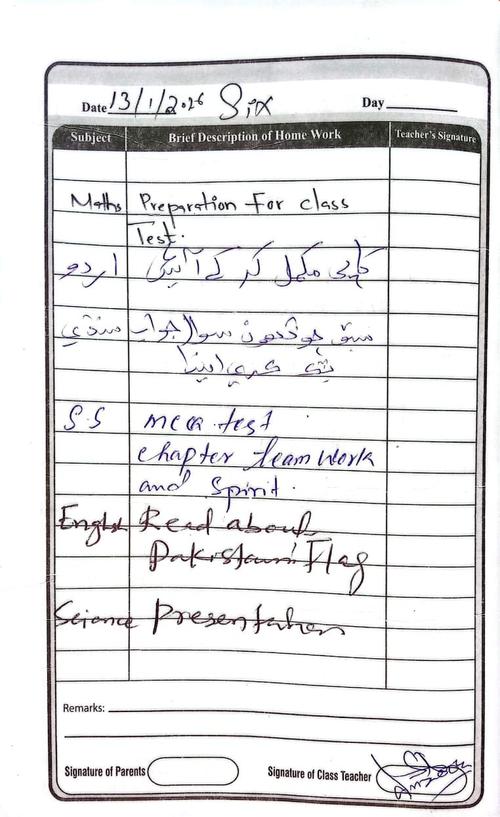 Date 13/1/2026 Six Day
Subject Brief Description of Home Work Teacher's Signature
Maths Preparation For class
Test.
اردو کاپی مکمل کر کے آئیں
سنڌي سبق جو سوال جواب
ڪري اينا
S.S mcq test
chapter team work
and Spirit.
English Read about
Pakistani Flag
Science Presentation
Remarks:
Signature of Parents Signature of Class Teacher